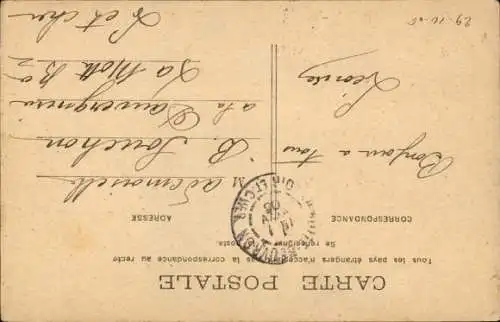 CARTE POSTALE
Tous les pays étrangers n'acceptent pas la correspondance au recto
Se renseigner à la Poste
CORRESPONDANCE
ADRESSE
Bonjour a tous
Léonie
M ademoiselle
B. Souchon
a la Sauvergnerie
La Mothe
Loir et cher
LOIR-ET-CHER
29-10-05